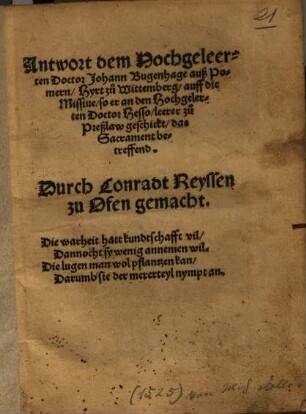 21
Antwort dem Hochgeleer-
ten Doctor Johann Bugenhage auß Po-
mern/ Hyrt zů Wittenberg/ auff die
Missiue/ so er an den Hochgeler-
ten Doctor Hesso/ leerer zů
Preßlaw geschickt/ das
Sacrament be-
treffend.
Durch Conradt Reyssen
zu Ofen gemacht.
Die warheit hatt kundtschafft vil/
Dannocht sy wenig annemen wil.
Die lugen man wol pflantzen kan/
Darumb sie der mererteyl nympt an.
(1525) von